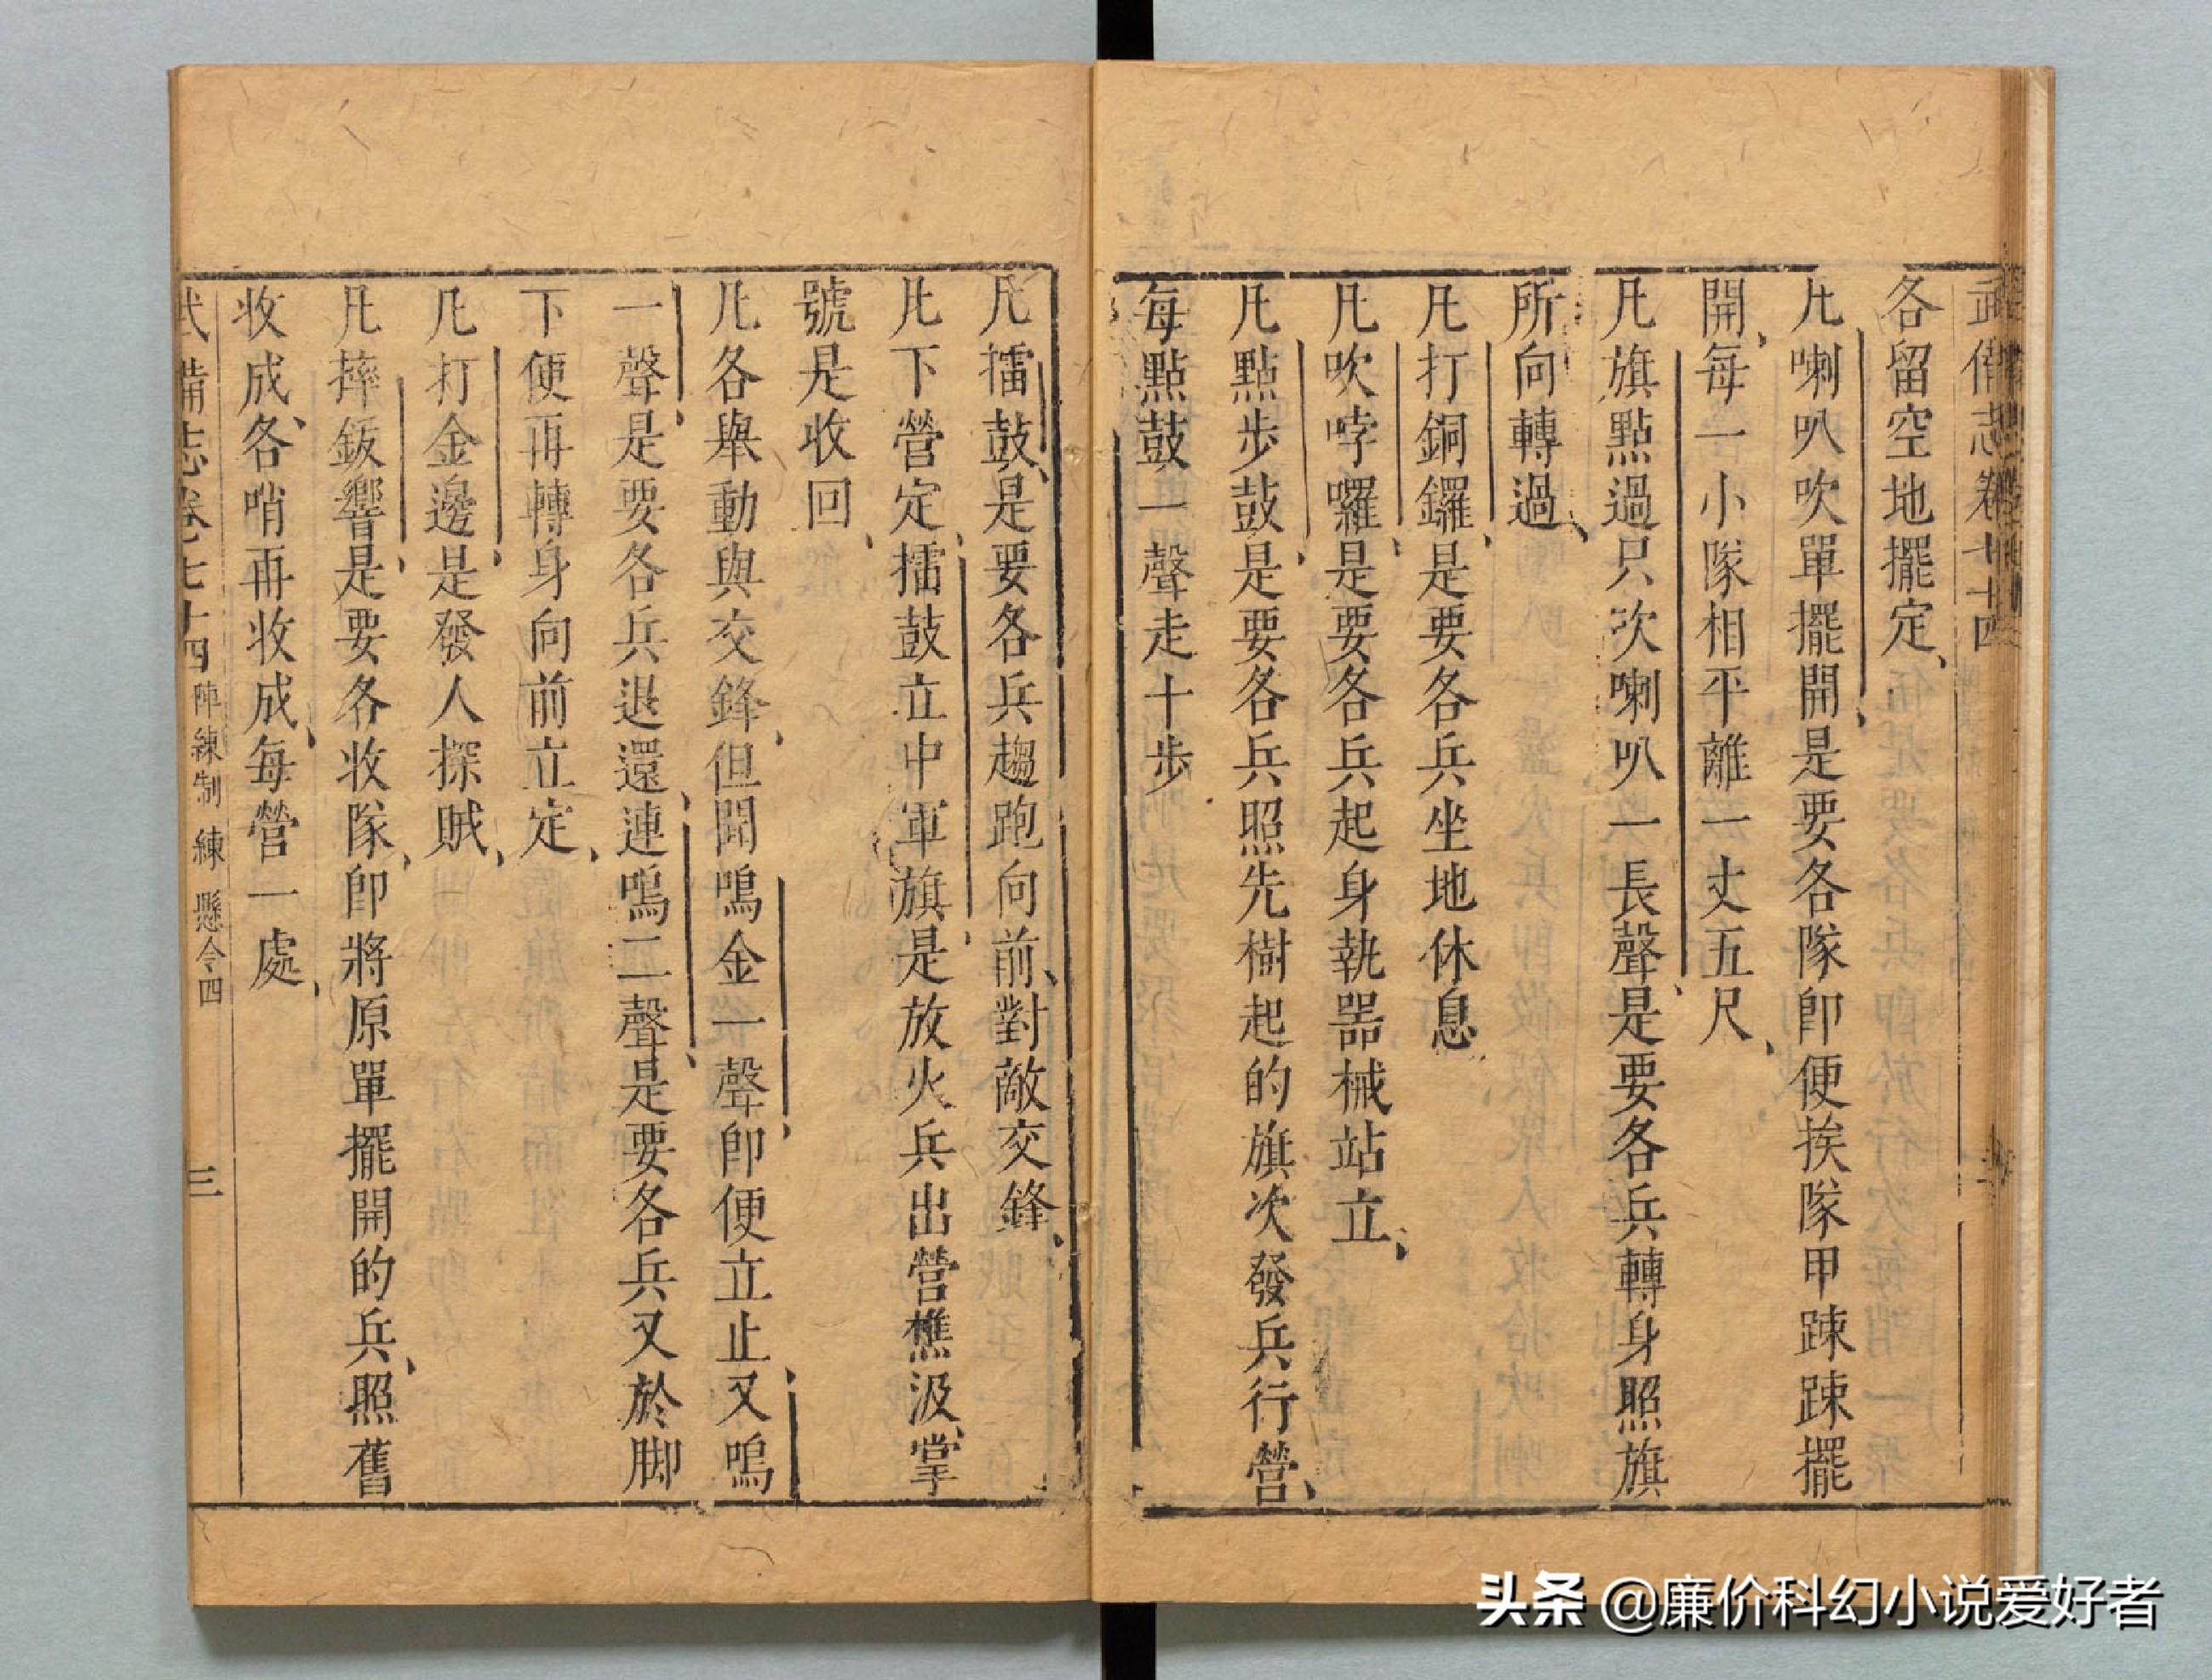 武備志卷七十四
各留空地擺定、
凡喇叭吹單擺開、是要各隊即便挨隊甲踈踈擺
開、每一小隊相平離一丈五尺、
凡旗點過只次喇叭一長聲、是要各兵轉身照旗
所向轉過、
凡打銅鑼、是要各兵坐地休息
凡吹哱囉、是要各兵起身執器械站立、
凡點步鼓、是要各兵照先樹起的旗次發兵行營、
每點鼓一聲走十步
凡擂鼓、是要各兵趨跑向前、對敵交鋒、
凡下營定、擂鼓立中軍旗、是放火兵出營樵汲、掌
號是收回、
凡各舉動與交鋒、但聞鳴金一聲、即便立止、又鳴
一聲、是要各兵退還、連鳴二聲、是要各兵又於脚
下便再轉身向前立定、
凡打金邊、是發人探賊、
凡摔鈸響、是要各收隊、即將原單擺開的兵、照舊
收成、各哨再收成、每營一處、
武備志卷七十四 陣練制 練 懸令四 三
头条 @廉价科幻小说爱好者